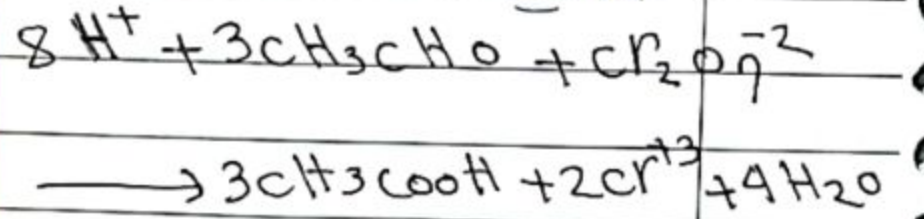 8 H⁺ + 3CH₃CHO + Cr₂O₇⁻²
⟶ 3CH₃COOH + 2Cr⁺³ + 4H₂O